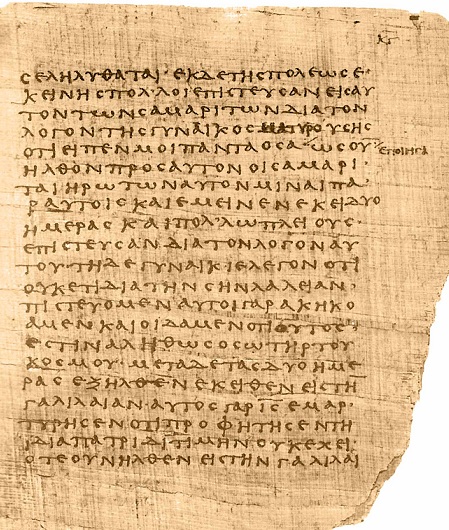 ϹΕΛΗΛΥΘΑΤΑΙ· ΕΚΔΕΤΗϹΠΟΛΕΩϹΕ·
ΚΕΙΝΗϹΠΟΛΛΟΙΕΠΙϹΤΕΥϹΑΝΕΙϹΑΥ
ΤΟΝΤΩΝϹΑΜΑΡΙΤΩΝΔΙΑΤΟΝ
ΛΟΓΟΝΤΗϹΓΥΝΑΙΚΟϹΜΑΡΤΥΡΟΥϹΗϹ
ΟΤΙΕΙΠΕΝΜΟΙΠΑΝΤΑΟϹΑ·ΩϹΟΥ ΕΠΟΙΗϹΑ
ΗΛΘΟΝΠΡΟϹΑΥΤΟΝΟΙϹΑΜΑΡΙ·
ΤΑΙΗΡΩΤΩΝΑΥΤΟΝΜΙΝΑΙΠΑ·
ΡΑΥΤΟΙϹΚΑΙΕΜΕΙΝΕΝΕΚΕΙΔΥΟ
ΗΜΕΡΑϹΚΑΙΠΟΛΛΩΠΛΕΙΟΥϹ·
ΕΠΙϹΤΕΥϹΑΝΔΙΑΤΟΝΛΟΓΟΝΑΥ
ΤΟΥ·ΤΗΔΕΓΥΝΑΙΚΙΕΛΕΓΟΝΟΤΙ
ΟΥΚΕΤΙΔΙΑΤΗΝϹΗΝΛΑΛΕΙΑΝ·
ΠΙϹΤΕΥΟΜΕΝΑΥΤΟΙΓΑΡΑΚΗΚΟ
ΑΜΕΝΚΑΙΟΙΔΑΜΕΝΟΤΙΟΥΤΟϹ
ΕϹΤΙΝΑΛΗΘΩϹΟϹΩΤΗΡΤΟΥ
ΚΟϹΜΟΥ·ΜΕΤΑΔΕΤΑϹΔΥΟΗΜΕ
ΡΑϹΕΞΗΛΘΕΝΕΚΕΙΘΕΝΕΙϹΤΗ
ΓΑΛΙΛΑΙΑΝ·ΑΥΤΟϹΓΑΡΙϹΕΜΑΡ·
ΤΥΡΗϹΕΝΟΤΙΠΡΟΦΗΤΗϹΕΝΤΗ
ΙΔΙΑΠΑΤΡΙΔΙΤΙΜΗΝΟΥΚΕΧΕΙ·
ΟΤΕΟΥΝΗΛΘΕΝΕΙϹΤΗΝΓΑΛΙΛΑΙ